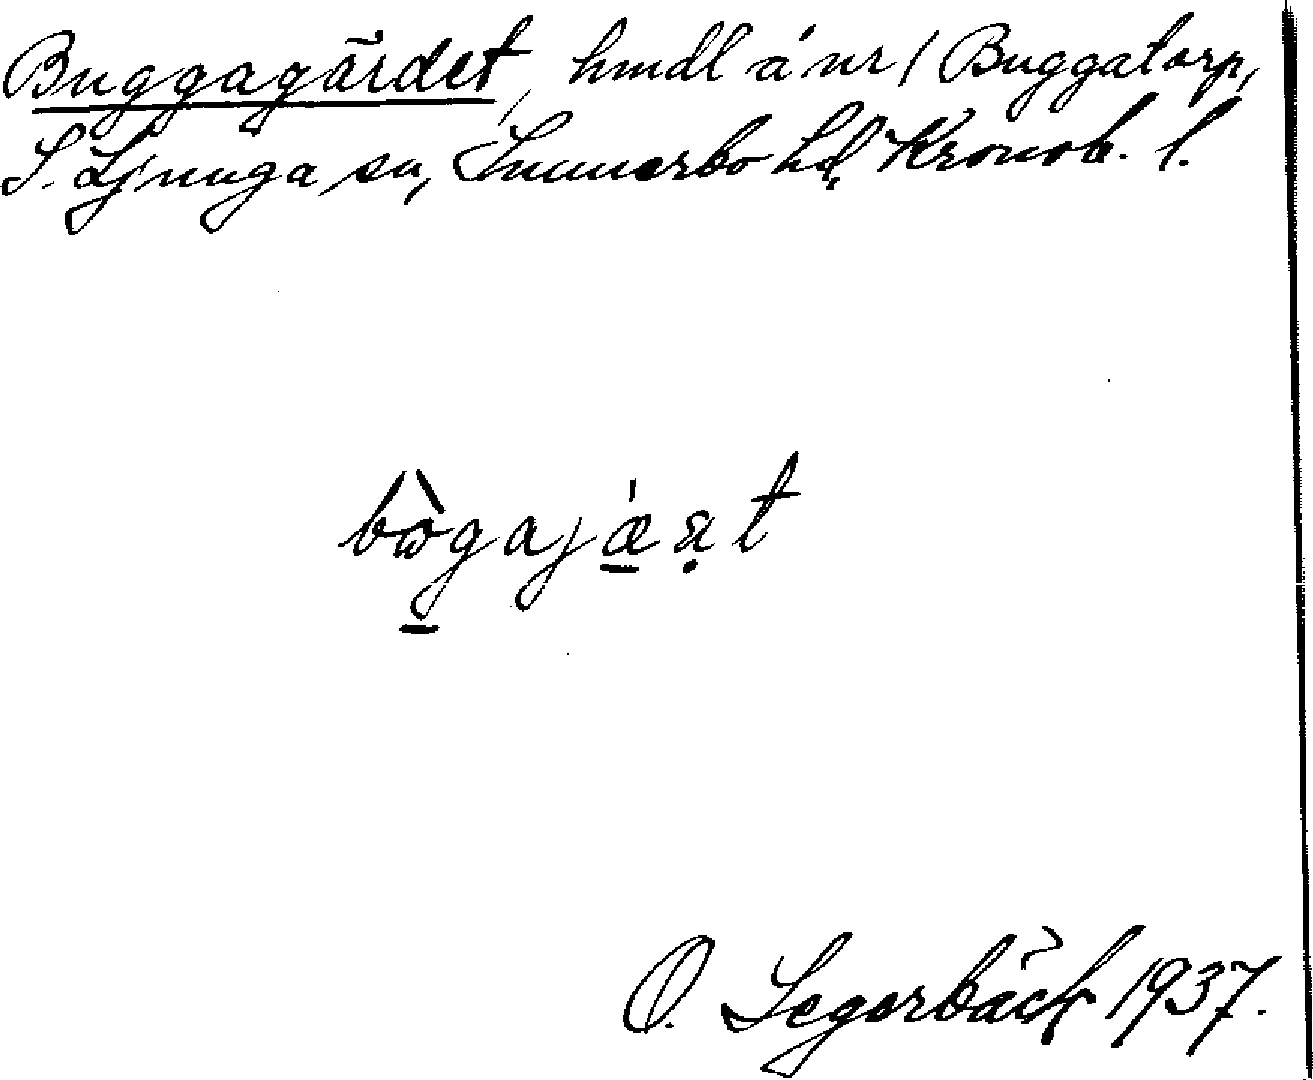 Buggagärdet, hmdl å nr 1 Buggatorp,
S. Ljunga sn, Sunnerbo hd, Kronob. l.
bὼgajǽᴀ̣t
O. Segerbäck 1937.